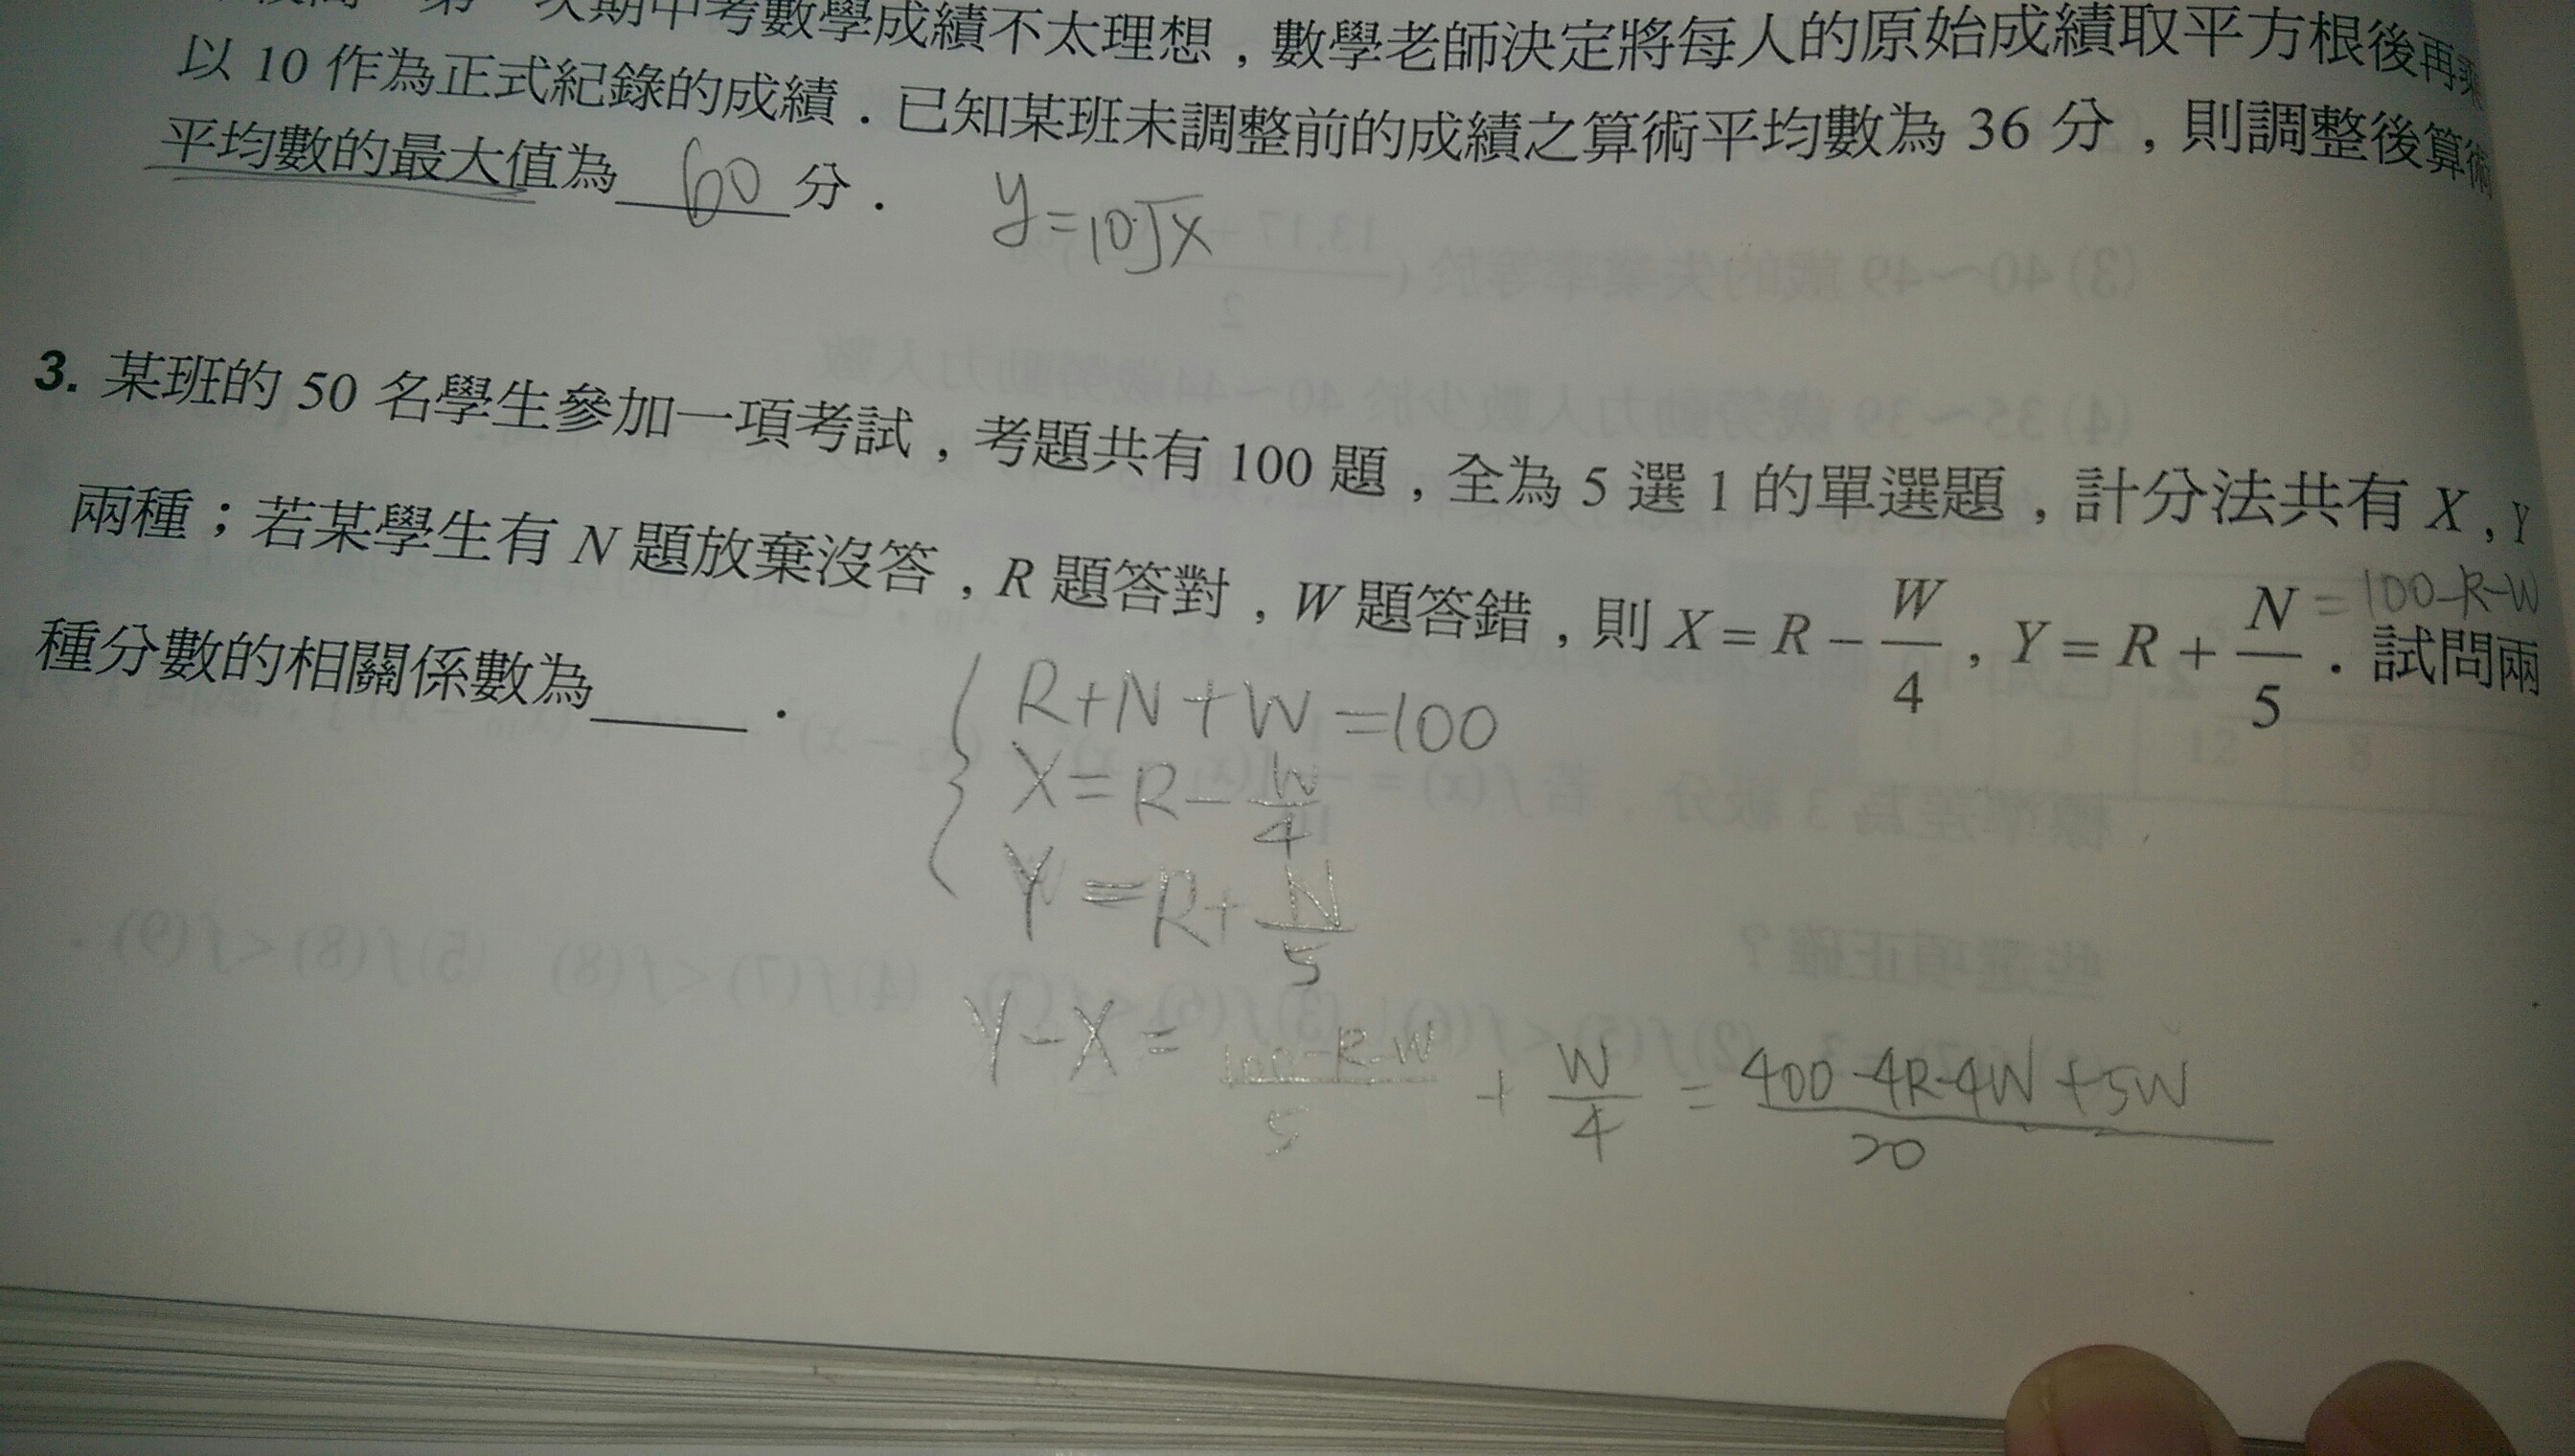 次期中考數學成績不太理想，數學老師決定將每人的原始成績取平方根後再乘
以 10 作為正式紀錄的成績．已知某班未調整前的成績之算術平均數為 36 分，則調整後算術
平均數的最大值為 60 分．
y=10√x
3. 某班的 50 名學生參加一項考試，考題共有 100 題，全為 5 選 1 的單選題，計分法共有 X，Y
兩種；若某學生有 N 題放棄沒答，R 題答對，W 題答錯，則 X = R − W/4，Y = R + N/5．試問兩
=100-R-W
種分數的相關係數為_____．
R+N+W=100
X=R-W/4
Y=R+N/5
Y-X=(100-R-W)/5+W/4=(400-4R-4W+5W)/20